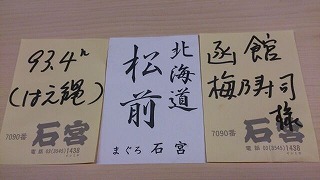 93.4㎏
(はえ縄)
7090番
石宮
電話 03(3545)1438
北海道
松前
まぐろ 石宮
函館
梅乃寿司
様
7090番
石宮
電話 03(3545)1438